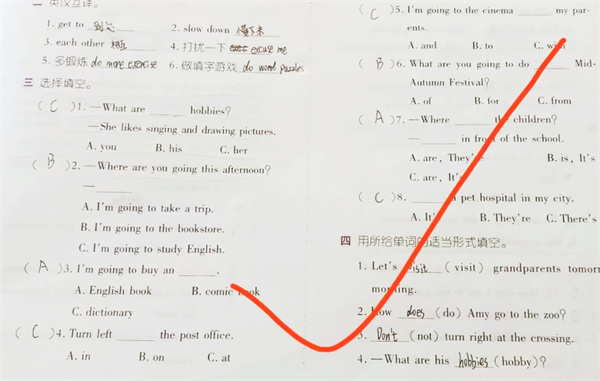 二 英汉互译。
1. get to 到达 2. slow down 慢下来
3. each other 相互 4. 打扰一下 excuse me
5. 多锻炼 do more exercise 6. 做填字游戏 do word puzzles
三 选择填空。
( C ) 1. —What are ______ hobbies?
—She likes singing and drawing pictures.
A. you B. his C. her
( B ) 2. —Where are you going this afternoon?
—______
A. I'm going to take a trip.
B. I'm going to the bookstore.
C. I'm going to study English.
( A ) 3. I'm going to buy an ______.
A. English book B. comic book
C. dictionary
( C ) 4. Turn left ______ the post office.
A. in B. on C. at
( C ) 5. I'm going to the cinema ______ my par-
ents.
A. and B. to C. with
( B ) 6. What are you going to do ______ Mid-
Autumn Festival?
A. of B. for C. from
( A ) 7. —Where ______ the children?
—______ in front of the school.
A. are, They're B. is, It's
C. are, It's
( C ) 8. ______ a pet hospital in my city.
A. It's B. They're C. There's
四 用所给单词的适当形式填空。
1. Let's visit (visit) grandparents tomor
morning.
2. How does (do) Amy go to the zoo?
3. Don't (not) turn right at the crossing.
4. —What are his hobbies (hobby)?